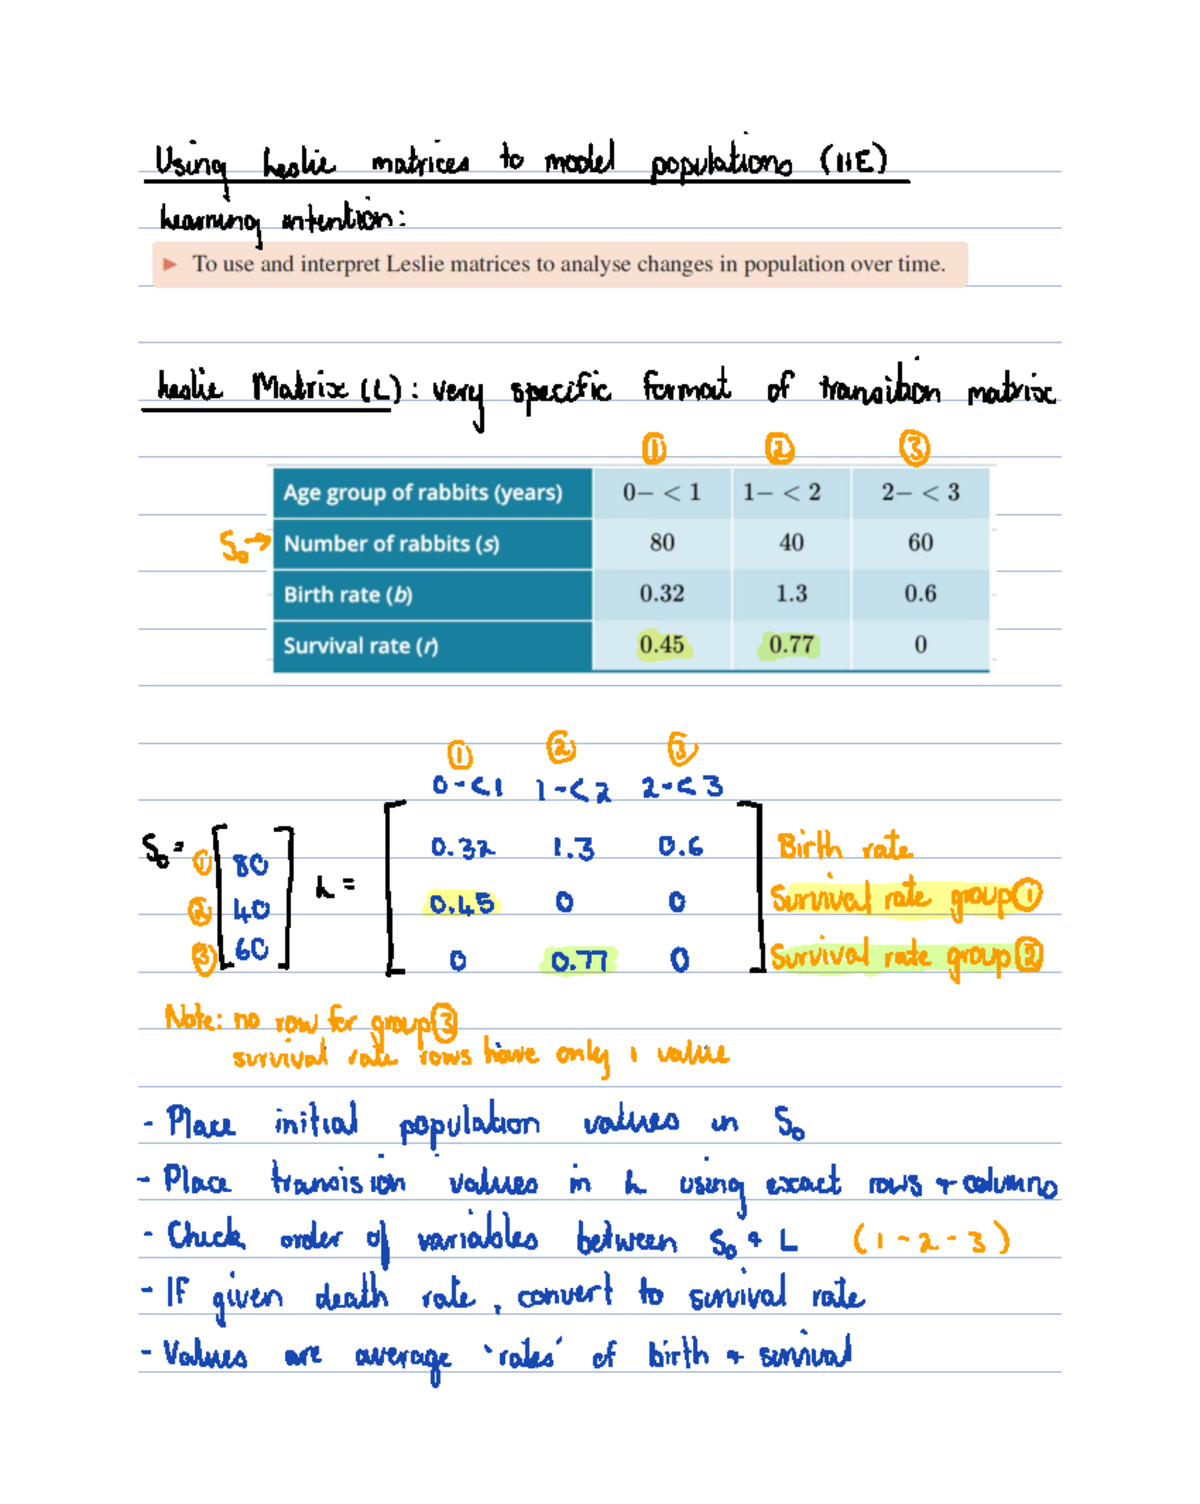 Using Leslie matrices to model populations (11E)
Learning intention:
► To use and interpret Leslie matrices to analyse changes in population over time.
Leslie Matrix (L): very specific format of transition matrix
① ② ③
Age group of rabbits (years) 0– < 1 1– < 2 2– < 3
S₀ → Number of rabbits (s) 80 40 60
Birth rate (b) 0.32 1.3 0.6
Survival rate (r) 0.45 0.77 0
① ② ③
0-<1 1-<2 2-<3
S₀ = ① 80 L = 0.32 1.3 0.6 Birth rate
② 40 0.45 0 0 Survival rate group ①
③ 60 0 0.77 0 Survival rate group ②
Note: no row for group ③
survival rate rows have only 1 value
- Place initial population values in S₀
- Place transision values in L using exact rows + columns
- Check order of variables between S₀ + L (1-2-3)
- If given death rate, convert to survival rate
- Values are average 'rates' of birth + survival